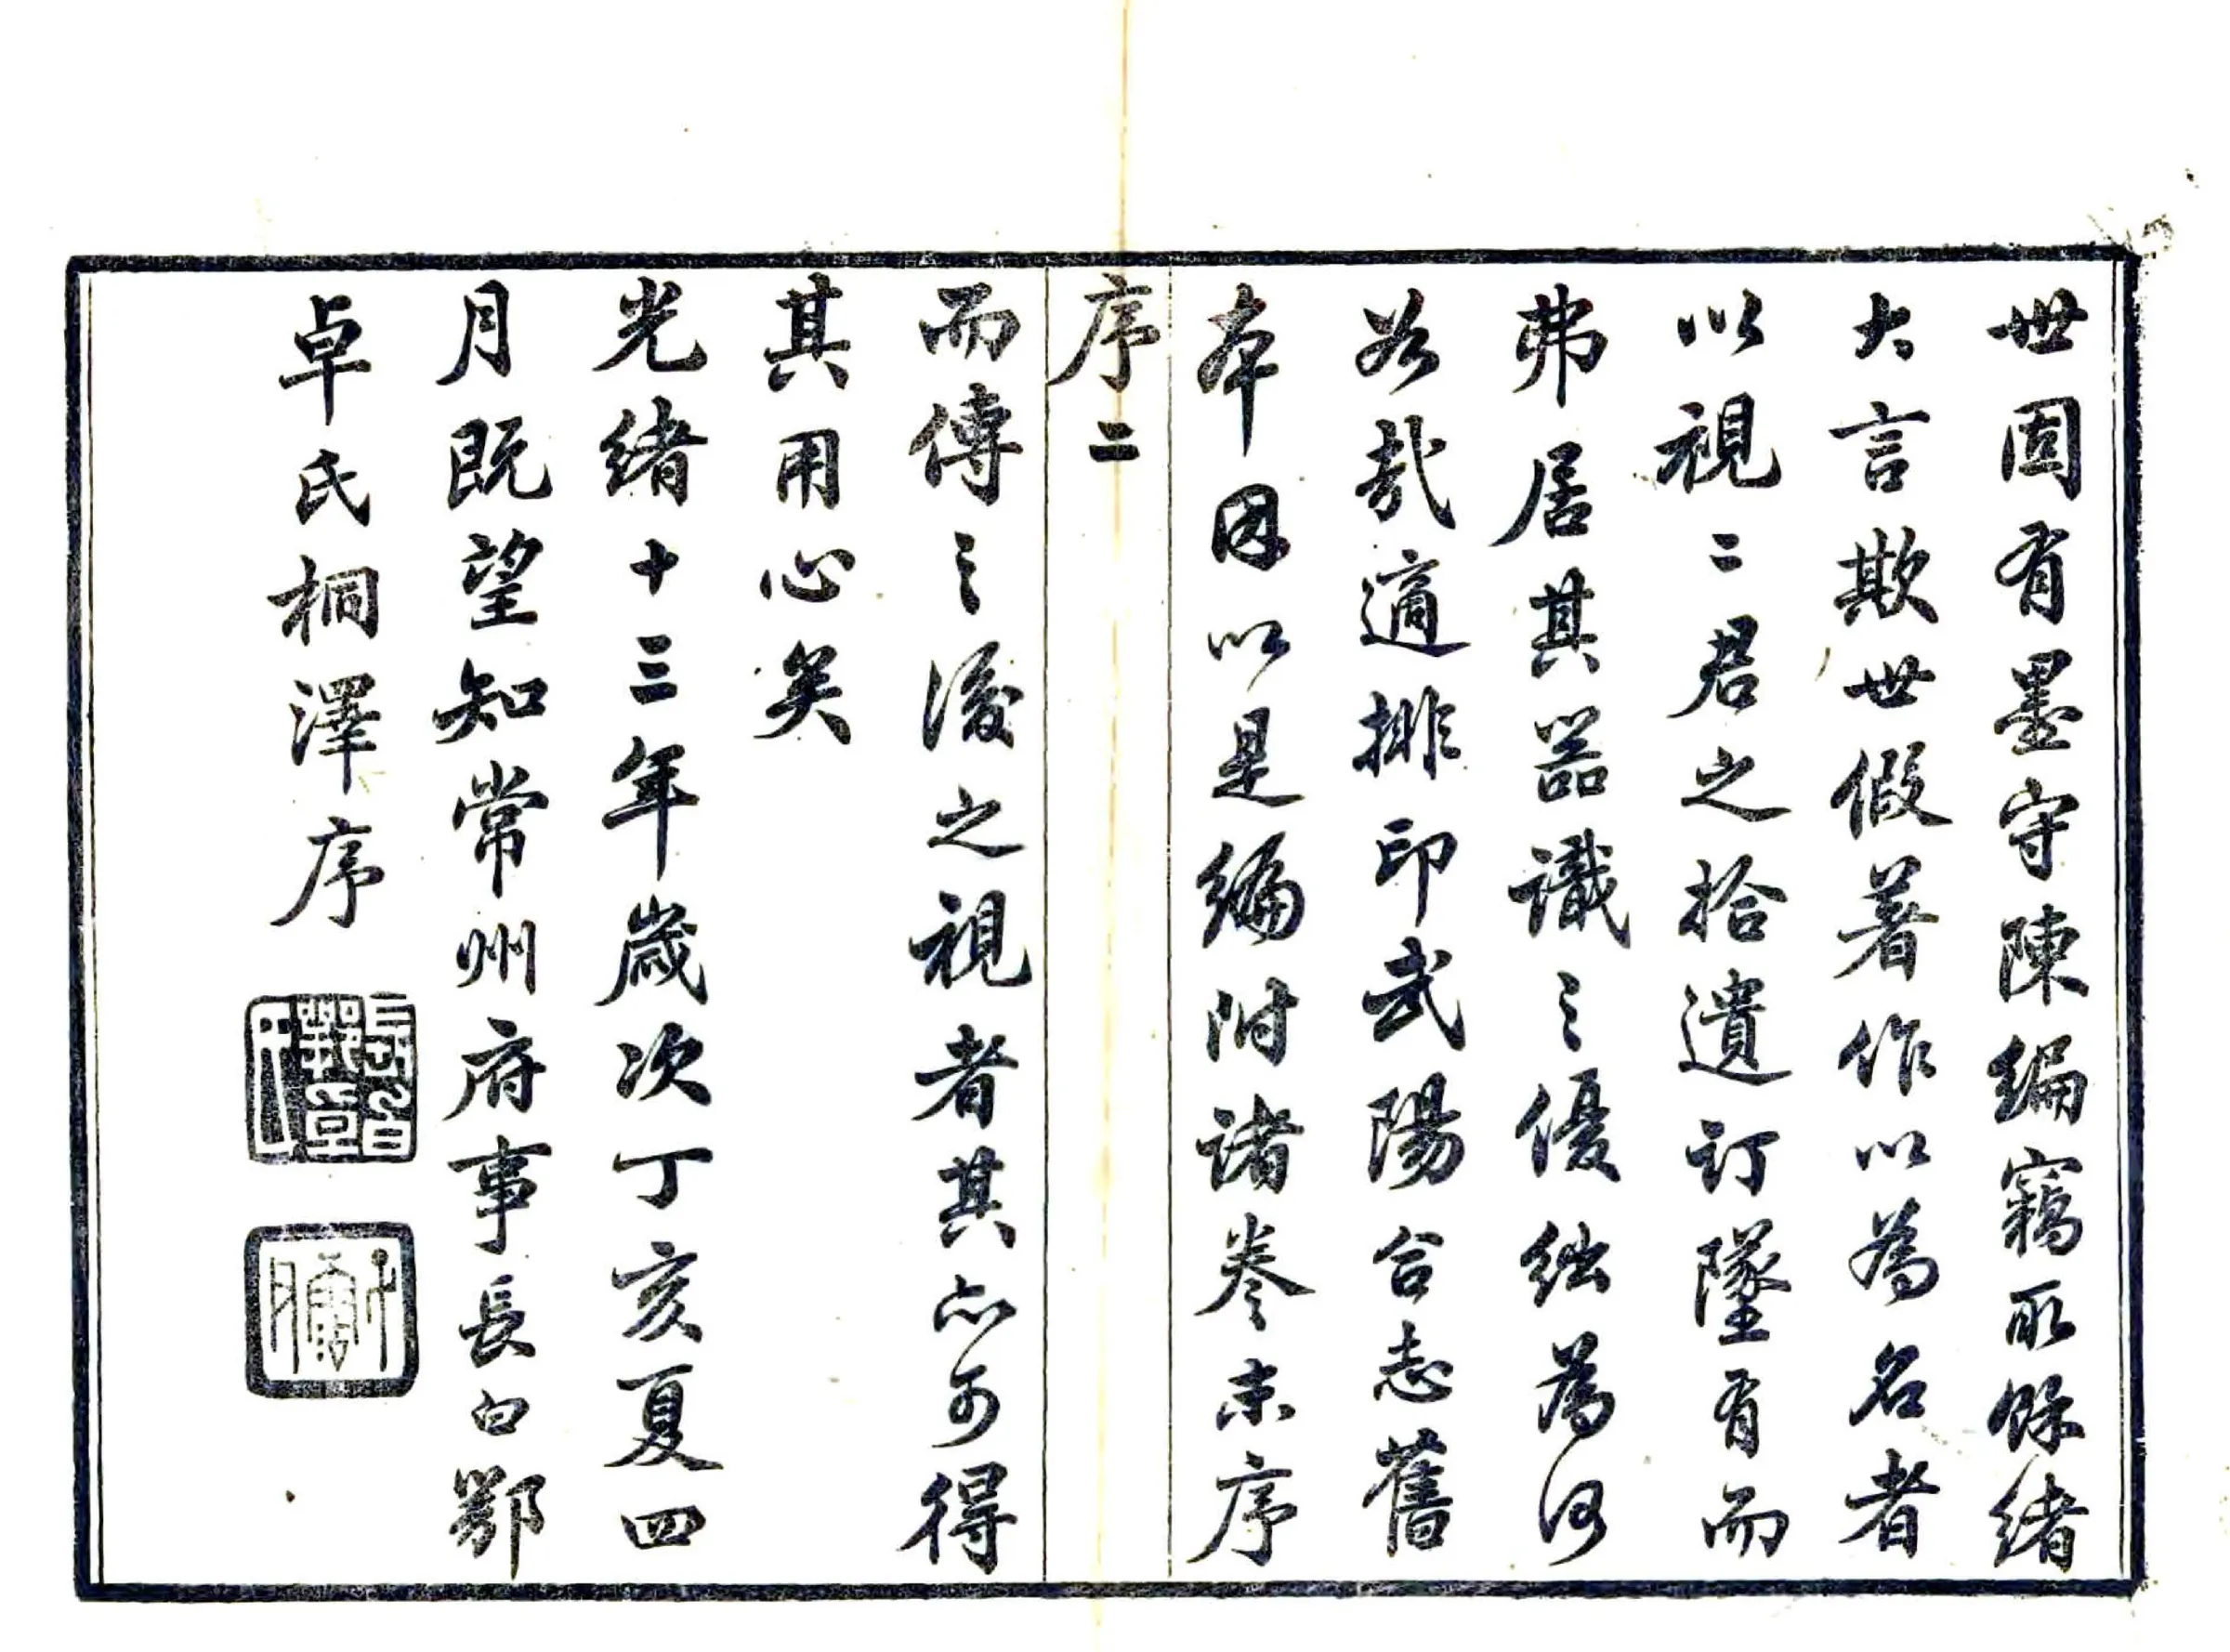 世固有墨守陳編竊取餘緒
大言欺世假著作以為名者
以視二君之拾遺訂墜有而
弗居其器識之優絀為何
若哉適排印武陽合志舊
本因以是編附諸卷末序
序二
而傳之後之視者其亦可得
其用心矣
光緒十三年歲次丁亥夏四
月既望知常州府事長白鄂
卓氏桐澤序